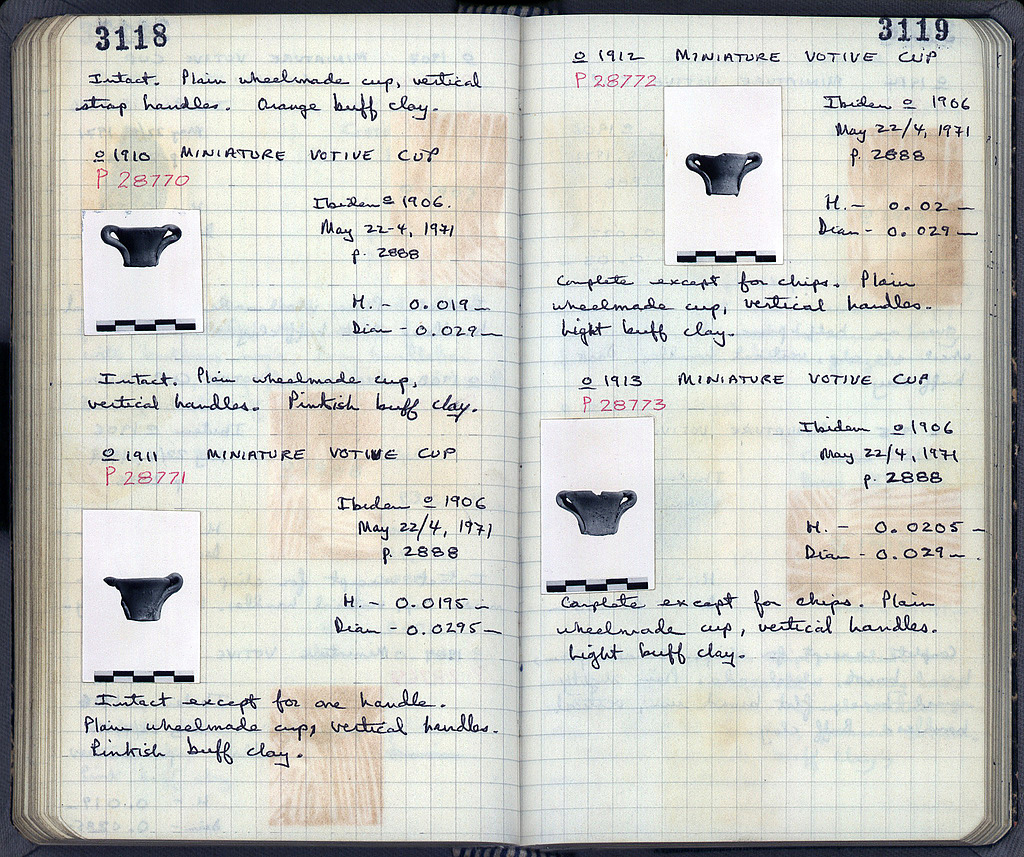 3118
Intact. Plain wheelmade cup, vertical
strap handles. Orange buff clay.
o 1910 MINIATURE VOTIVE CUP
P 28770
Ibidem o 1906.
May 22-4, 1971
p. 2888
H. - 0.019 -
Diam - 0.029 -
Intact. Plain wheelmade cup,
vertical handles. Pinkish buff clay.
o 1911 MINIATURE VOTIVE CUP
P 28771
Ibidem o 1906
May 22/4, 1971
p. 2888
H. - 0.0195 -
Diam - 0.0295 -
Intact except for one handle.
Plain wheelmade cup, vertical handles.
Pinkish buff clay.
3119
o 1912 MINIATURE VOTIVE CUP
P 28772
Ibidem o 1906
May 22/4, 1971
p. 2888
H. - 0.02 -
Diam - 0.029 -
Complete except for chips. Plain
wheelmade cup, vertical handles.
Light buff clay.
o 1913 MINIATURE VOTIVE CUP
P 28773
Ibidem o 1906
May 22/4, 1971
p. 2888
H. - 0.0205 -
Diam - 0.029 - .
Complete except for chips. Plain
wheelmade cup, vertical handles.
Light buff clay.